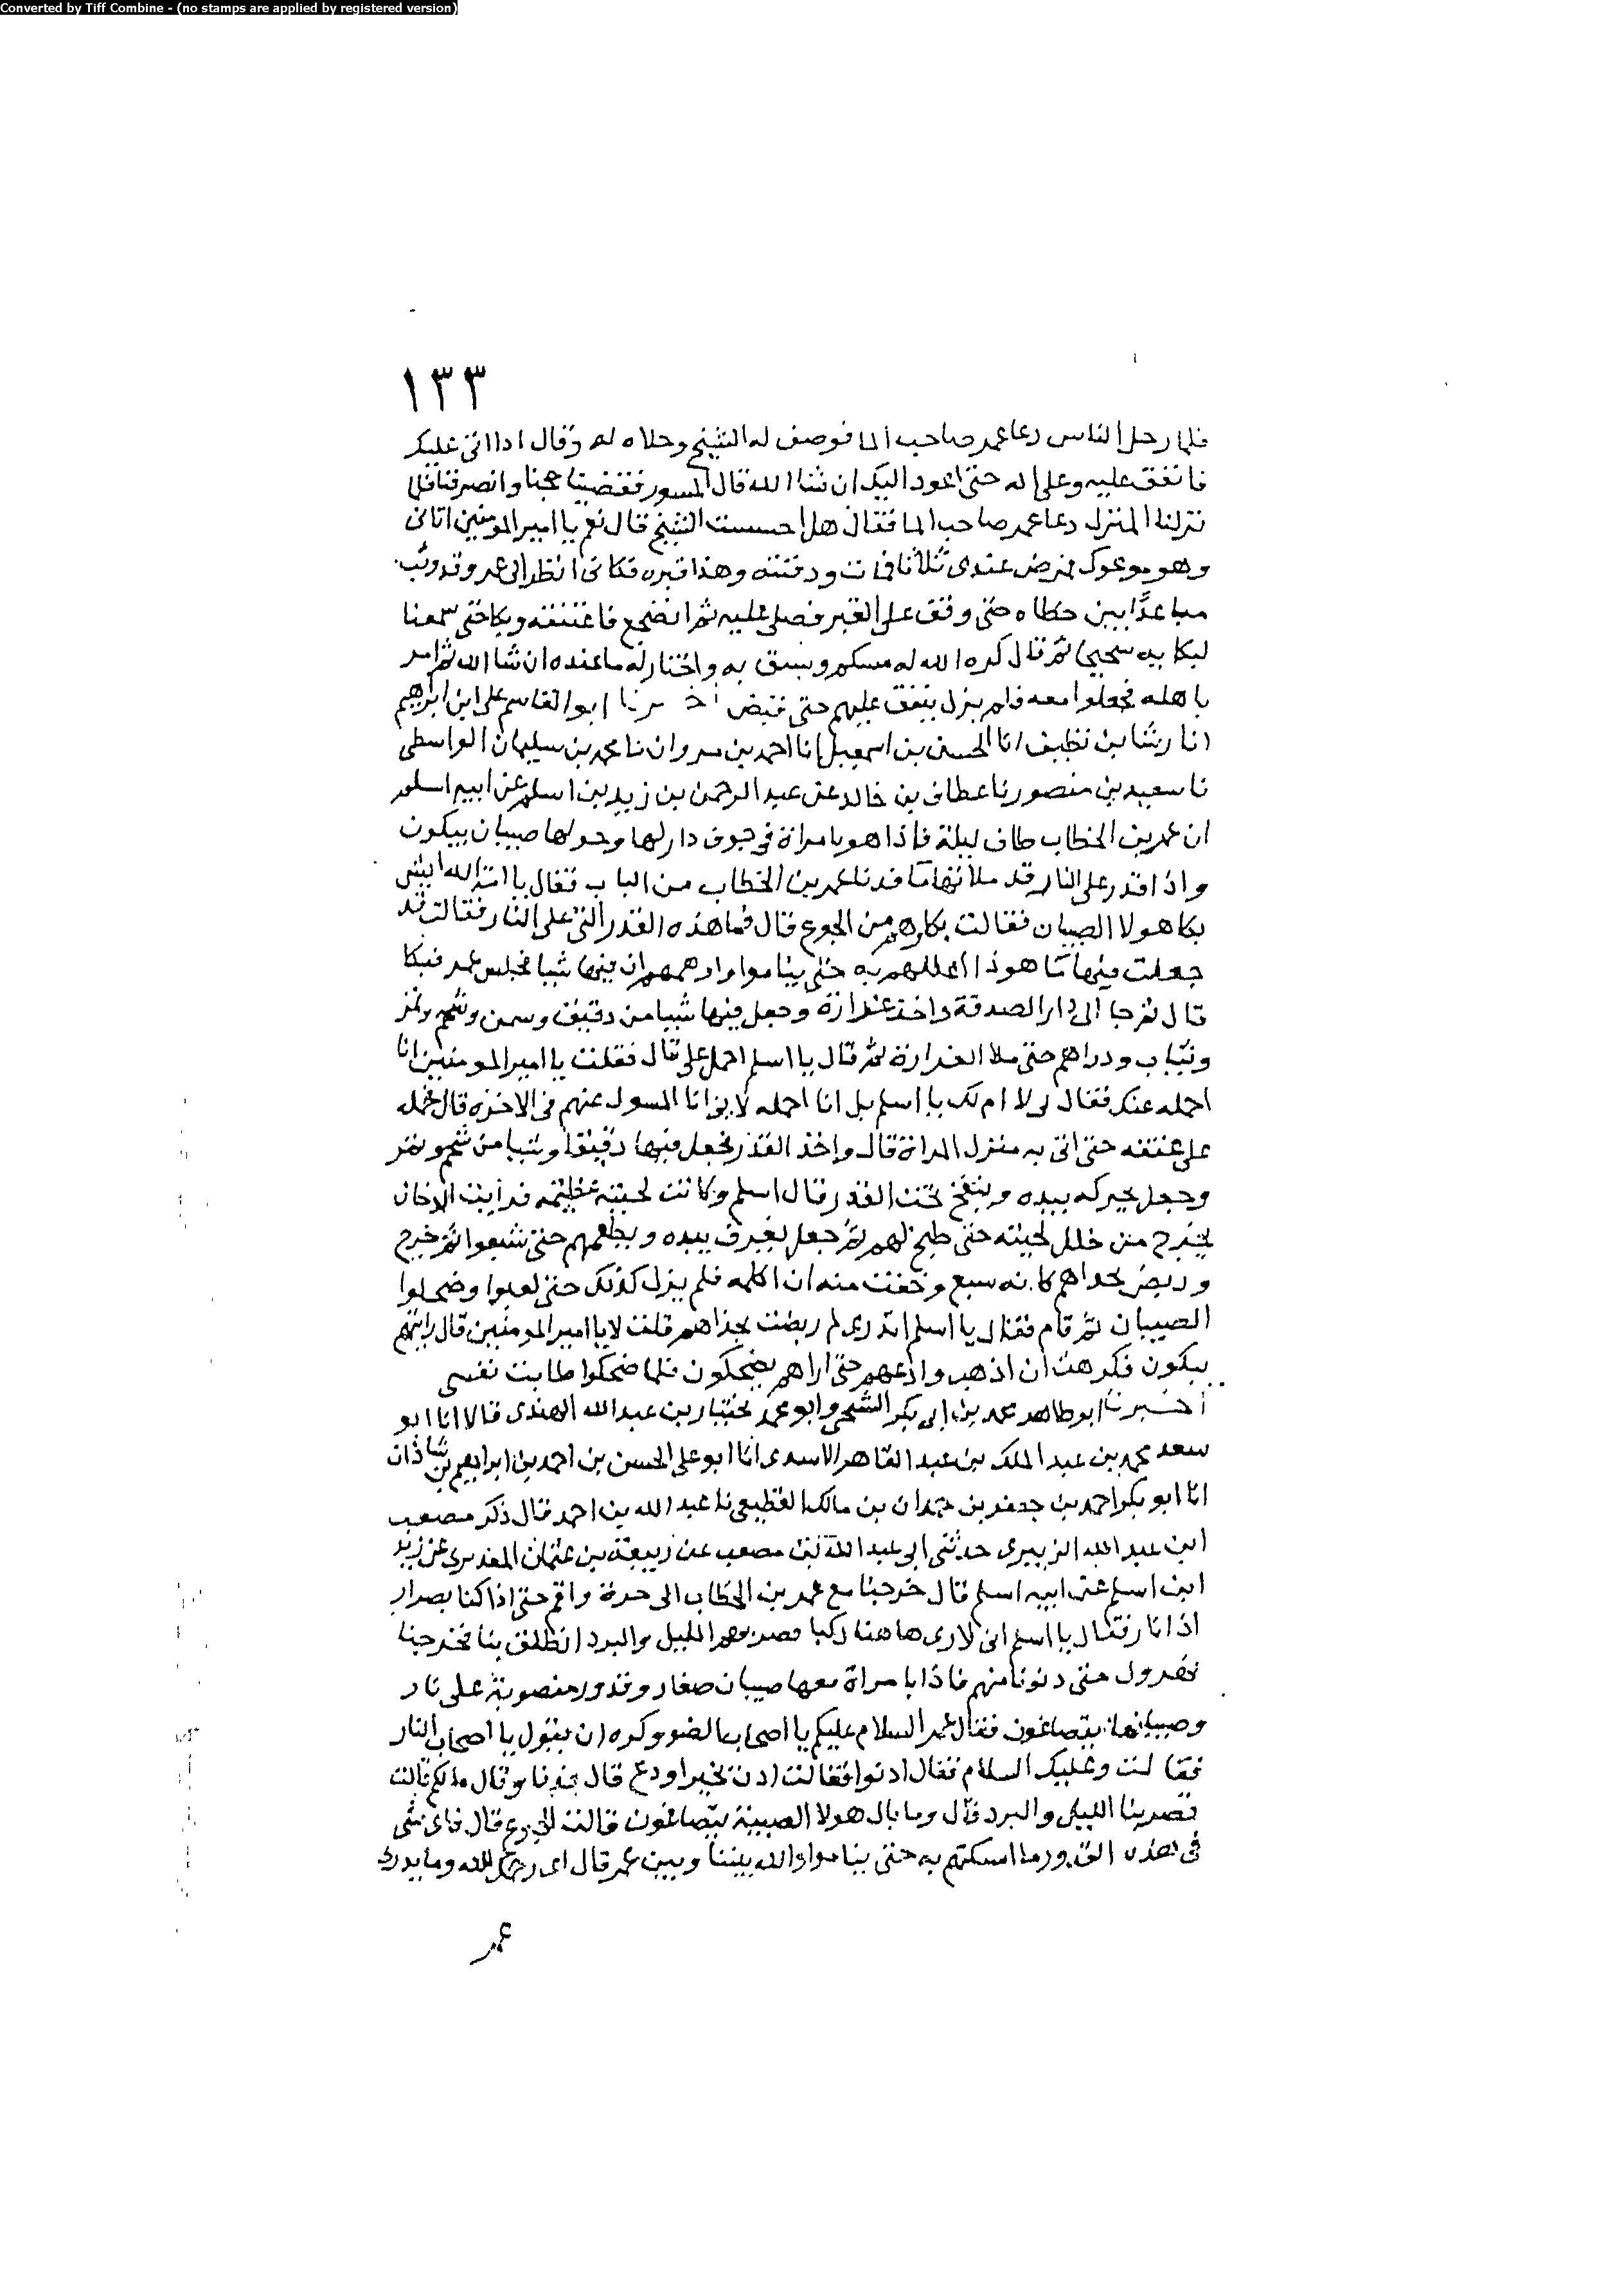 Converted by Tiff Combine - (no stamps are applied by registered version)
١٣٣
فلما رحل الناس دعا عمر صاحب الما فوصف له الشيخ وحلاه له وقال اذا اتى عليك
فانفق عليه وعلى اله حتى اعود اليك ان شا الله قال المسور فقضينا حجنا وانصرفنا فلما
نزلنا المنزل دعا عمر صاحب الما فقال هل احسست الشيخ قال نعم يا امير المومنين اتانى
وهو موعوك فمرض عندى ثلاثا فمات ودفنته وهذا قبره فكانى انظر الى عمر وقد وثب
مباعدًا بين خطاه حتى وقف على القبر فصلى عليه ثم انضجع فاعتنقه وبكا حتى سمعنا
لبكايه نحيبا ثم قال كره الله له منتكم وسبق به واختار له ما عنده ان شا الله ثم امر
باهله فحملوا معه فلم يزل ينفق عليهم حتى قبض أخبرنا ابو القاسم على ابن ابراهيم
انا رشا بن نظيف انا الحسن بن اسمعيل انا احمد بن مروان نا محمد بن سليمان الواسطى
نا سعيد بن منصور نا عطاف بن خالد عن عبد الرحمن بن زيد بن اسلم عن ابيه اسلم
ان عمر بن الخطاب طاف ليلة فاذا هو بامراة فى جوف دار لها وحولها صبيان يبكون
واذا قدر على النار قد ملاتها ما فدنا عمر بن الخطاب من الباب فقال يا امة الله ايش
بكا هولا الصبيان فقالت بكاوهم من الجوع قال فما هذه القدر التى على النار فقالت قد
جعلت فيها ما هوذا اعللهم به حتى يناموا واوهمهم ان فيها شيا فجلس عمر فبكا
قال ثم جا الى دار الصدقة واخذ غرارة وجعل فيها شيا من دقيق وسمن وشحم وتمر
وثياب ودراهم حتى ملا الغرارة ثم قال يا اسلم احمل على قال فقلت يا امير المومنين انا
احمله عنك فقال لى لا ام لك يا اسلم بل انا احمله لانى انا المسول عنهم فى الاخرة قال فحمله
على عنقه حتى اتى به منزل المراة قال واخذ القدر فجعل فيها دقيقا وشيا من شحم وتمر
وجعل يحركه بيده وينفخ تحت القدر قال اسلم وكانت لحيته عظيمة فرأيت الدخان
يخرج من خلل لحيته حتى طبخ لهم ثم جعل يغرف بيده ويطعمهم حتى شبعوا ثم خرج
وربض بحداهم كانه سبع وخفت منه ان اكلمه فلم يزل كذلك حتى لعبوا وضحكوا
الصبيان ثم قام فقال يا اسلم اتدرى لم ربضت بحذاهم قلت لا يا امير المومنين قال رايتهم
يبكون فكرهت ان اذهب وادعهم حتى اراهم يضحكون فلما ضحكوا طابت نفسى
أخبرنا ابو طاهر محمد بن ابى بكر السنجى وابو محمد بختيار بن عبد الله الهندى قالا انا ابو
سعد محمد بن عبد الملك بن عبد القاهر الاسدى انا ابو على الحسن بن احمد بن ابراهيم بن شاذان
انا ابو بكر احمد بن جعفر بن حمدان بن مالك القطيعى نا عبد الله بن احمد قال ذكر مصعب
ابن عبد الله الزبيرى حدثنى ابى عبد الله بن مصعب عن ربيعة بن عثمان الهديرى عن زيد
ابن اسلم عن ابيه اسلم قال خرجنا مع عمر بن الخطاب الى حرة واقم حتى اذا كنا بصرار
اذا نار فقال يا اسلم انى لارى هاهنا ركبا قصر بهم الليل والبرد انطلق بنا فخرجنا
نهرول حتى دنونا منهم فاذا بامراة معها صبيان صغار وقدور منصوبة على نار
وصبيانها يتضاغون فقال عمر السلام عليكم يا اصحاب الضو وكره ان يقول يا اصحاب النار
فقالت وعليك السلام فقال ادنوا فقالت ادن بخير او دع قال فدنا وقال ما لكم قالت
قصر بنا الليل والبرد قال وما بال هولا الصبية يتضاغون قالت الجوع قال فاى شى
فى هذه القدور ما اسكتهم به حتى يناموا والله بيننا وبين عمر قال اى رحمك الله وما يدرى
عمر